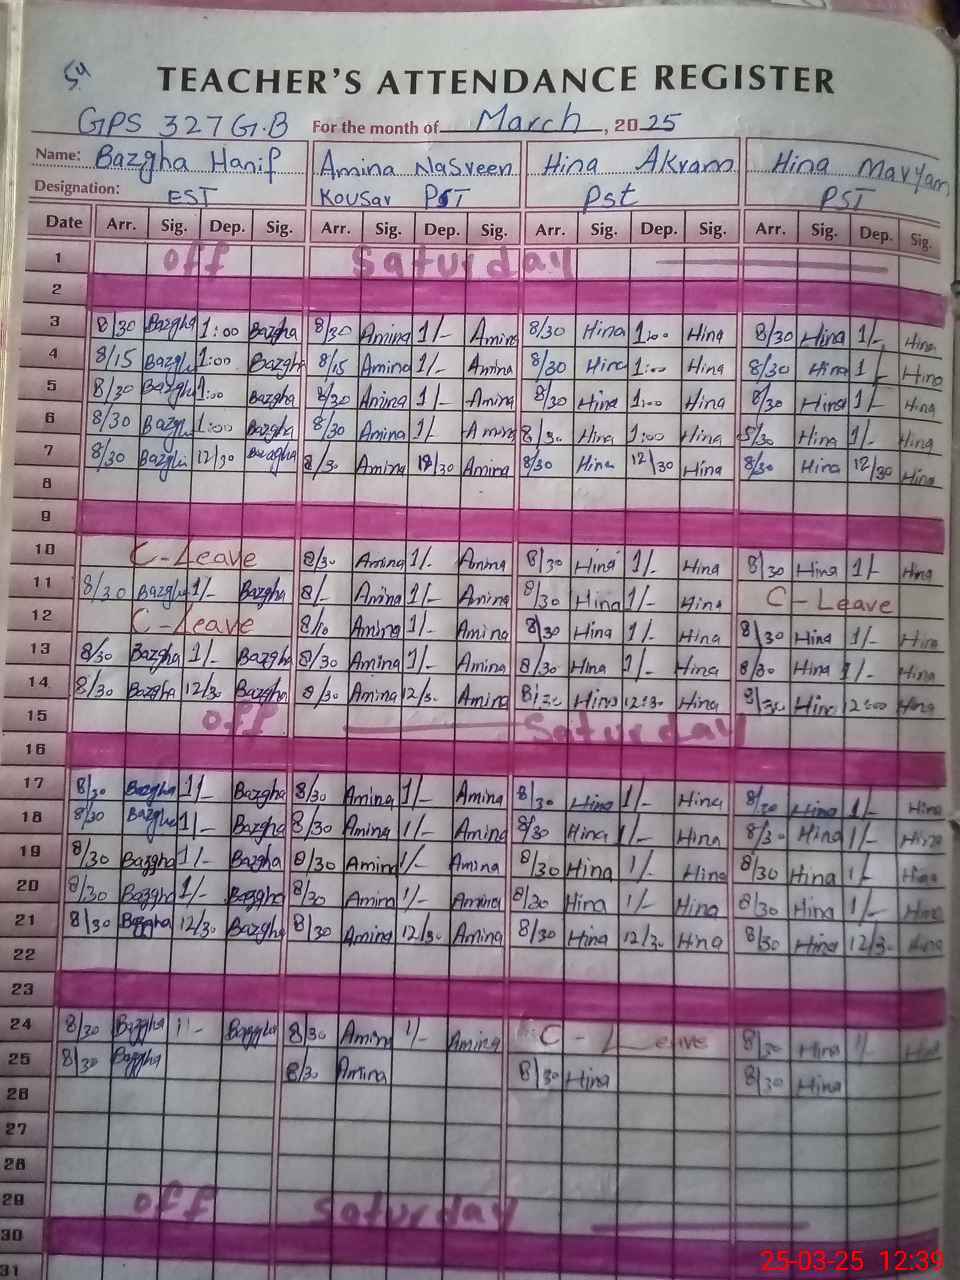 54
TEACHER'S ATTENDANCE REGISTER
GPS 327 G.B For the month of March, 2025
Name: Bazgha Hanif Amina Nasreen Hina Akram Hina Maryam
Designation: EST Kousar PST Pst PST
Date Arr. Sig. Dep. Sig. Arr. Sig. Dep. Sig. Arr. Sig. Dep. Sig. Arr. Sig. Dep. Sig.
1 off Saturday
2
3 8/30 Bazgha 1:00 Bazgha 8/30 Amina 1/- Amina 8/30 Hina 1:00 Hina 8/30 Hina 1/- Hina
4 8/15 Bazgha 1:00 Bazgha 8/15 Amina 1/- Amina 8/30 Hina 1:00 Hina 8/30 Hina 1/- Hina
5 8/30 Bazgha 1:00 Bazgha 8/30 Amina 1/- Amina 8/30 Hina 1:00 Hina 8/30 Hina 1/- Hina
6 8/30 Bazgha 1:00 Bazgha 8/30 Amina 1/- Amina 8/30 Hina 1:00 Hina 8/30 Hina 1/- Hina
7 8/30 Bazgha 12/30 Bazgha 8/30 Amina 12/30 Amina 8/30 Hina 12/30 Hina 8/30 Hina 12/30 Hina
8
9
10 C-Leave 8/30 Amina 1/- Amina 8/30 Hina 1/- Hina 8/30 Hina 1/- Hina
11 8/30 Bazgha 1/- Bazgha 8/- Amina 1/- Amina 8/30 Hina 1/- Hina C-Leave
12 C-Leave 8/10 Amina 1/- Amina 8/30 Hina 1/- Hina 8/30 Hina 1/- Hina
13 8/30 Bazgha 1/- Bazgha 8/30 Amina 1/- Amina 8/30 Hina 1/- Hina 8/30 Hina 1/- Hina
14 8/30 Bazgha 12/30 Bazgha 8/30 Amina 12/30 Amina 8:30 Hina 12:30 Hina 8/30 Hina Hina
15 off Saturday
16
17 8/30 Bazgha 1/- Bazgha 8/30 Amina 1/- Amina 8/30 Hina 1/- Hina 8/30 Hina 1/- Hina
18 8/30 Bazgha 1/- Bazgha 8/30 Amina 1/- Amina 8/30 Hina 1/- Hina 8/30 Hina 1/- Hina
19 8/30 Bazgha 1/- Bazgha 8/30 Amina 1/- Amina 8/30 Hina 1/- Hina 8/30 Hina 1/- Hina
20 8/30 Bazgha 1/- Bazgha 8/30 Amina 1/- Amina 8/30 Hina 1/- Hina 8/30 Hina 1/- Hina
21 8/30 Bazgha 12/30 Bazgha 8/30 Amina 12/30 Amina 8/30 Hina 12/30 Hina 8/30 Hina 12/30 Hina
22
23
24 8/30 Bazgha 1/- Bazgha 8/30 Amina 1/- Amina C-Leave 8/30 Hina 1/- Hina
25 8/30 Bazgha 8/30 Amina 8/30 Hina 8/30 Hina
26
27
28
29 off Saturday
30
31
25-03-25 12:39